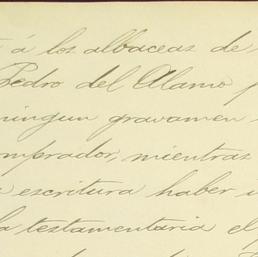 á los albaceas de
Pedro del Alamo
ningun gravamen
omprador, mientras
escritura haber
la testamentaria el